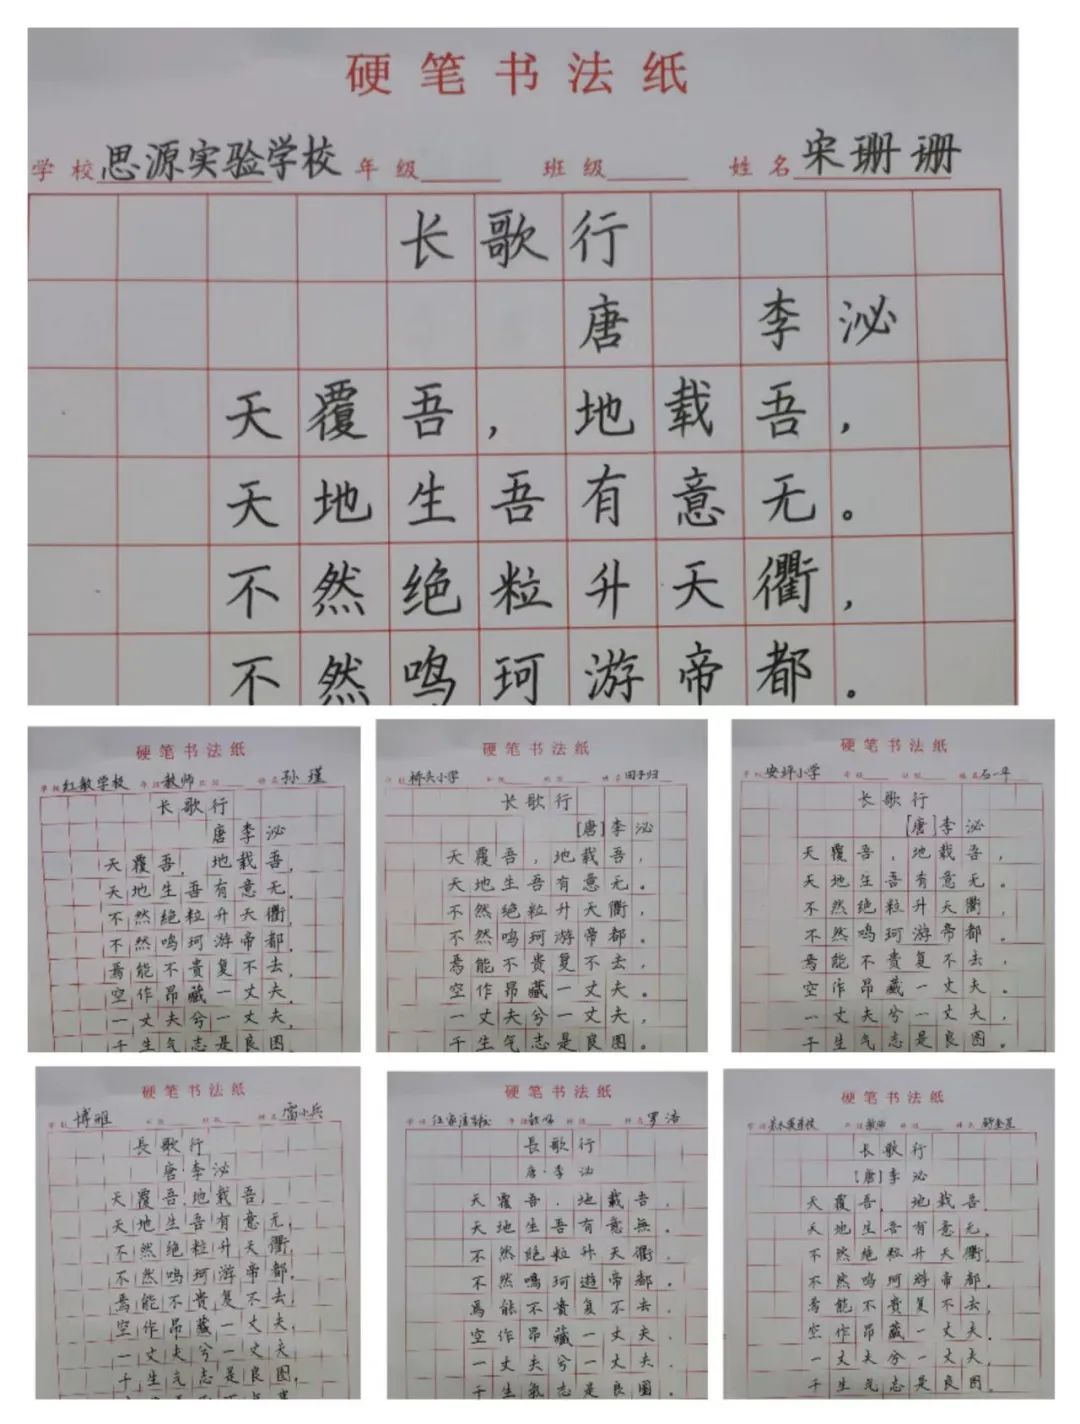 硬笔书法纸
学校思源实验学校 年级 班级 姓名宋珊珊
长歌行
唐 李泌
天覆吾，地载吾，
天地生吾有意无。
不然绝粒升天衢，
不然鸣珂游帝都。
硬笔书法纸
学校红教学校 年级教师 班级 姓名孙瑾
长歌行
唐李泌
天覆吾，地载吾，
天地生吾有意无。
不然绝粒升天衢，
不然鸣珂游帝都，
焉能不贵复不去，
空作昂藏一丈夫。
一丈夫兮一丈夫，
千生气志是良图
硬笔书法纸
桥头小学 姓名田子归
长歌行
[唐]李泌
天覆吾，地载吾，
天地生吾有意无。
不然绝粒升天衢，
不然鸣珂游帝都。
焉能不贵复不去，
空作昂藏一丈夫。
一丈夫兮一丈夫，
千生气志是良图。
硬笔书法纸
学校安坪小学 年级 班级 姓名石一平
长歌行
[唐]李泌
天覆吾，地载吾，
天地生吾有意无。
不然绝粒升天衢，
不然鸣珂游帝都。
焉能不贵复不去，
空作昂藏一丈夫。
一丈夫兮一丈夫，
千生气志是良图。
硬笔书法纸
学校博雅 年级 班级 姓名雷小兵
長歌行
唐·李泌
天覆吾，地载吾，
天地生吾有意无，
不然绝粒升天衢，
不然鸣珂游帝都，
焉能不贵复不去，
空作昂藏一丈夫，
一丈夫兮一丈夫，
千生气志是良图，
硬笔书法纸
学校 年级教师 班级 姓名罗浩
長歌行
唐·李泌
天覆吾，地载吾，
天地生吾有意無。
不然絶粒升天衢，
不然鳴珂遊帝都。
焉能不贵复不去，
空作昂藏一丈夫。
一丈夫兮一丈夫，
千生氣志是良圖。
硬笔书法纸
学校 年级教师 班级 姓名
长歌行
[唐]李泌
天覆吾，地载吾
天地生吾有意无，
不然绝粒升天衢，
不然鸣珂游帝都。
焉能不贵复不去，
空作昂藏一丈夫。
一丈夫兮一丈夫，
千生气志是良图。